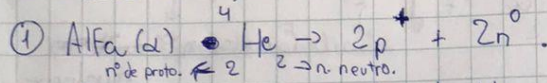 ① Alfa (α) • ⁴He → 2p⁺ + 2n⁰.
nº de proto. ← 2 2 → n. neutro.